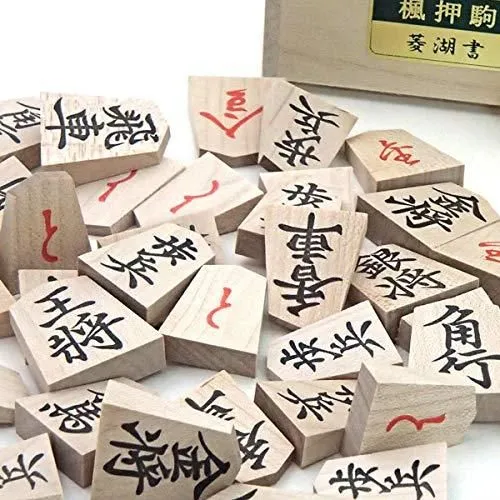 楓押駒
菱湖書
飛車
歩兵
金将
歩兵
香車
銀将
王将
角行
歩兵
歩兵
金将
歩兵
と
と
と
と